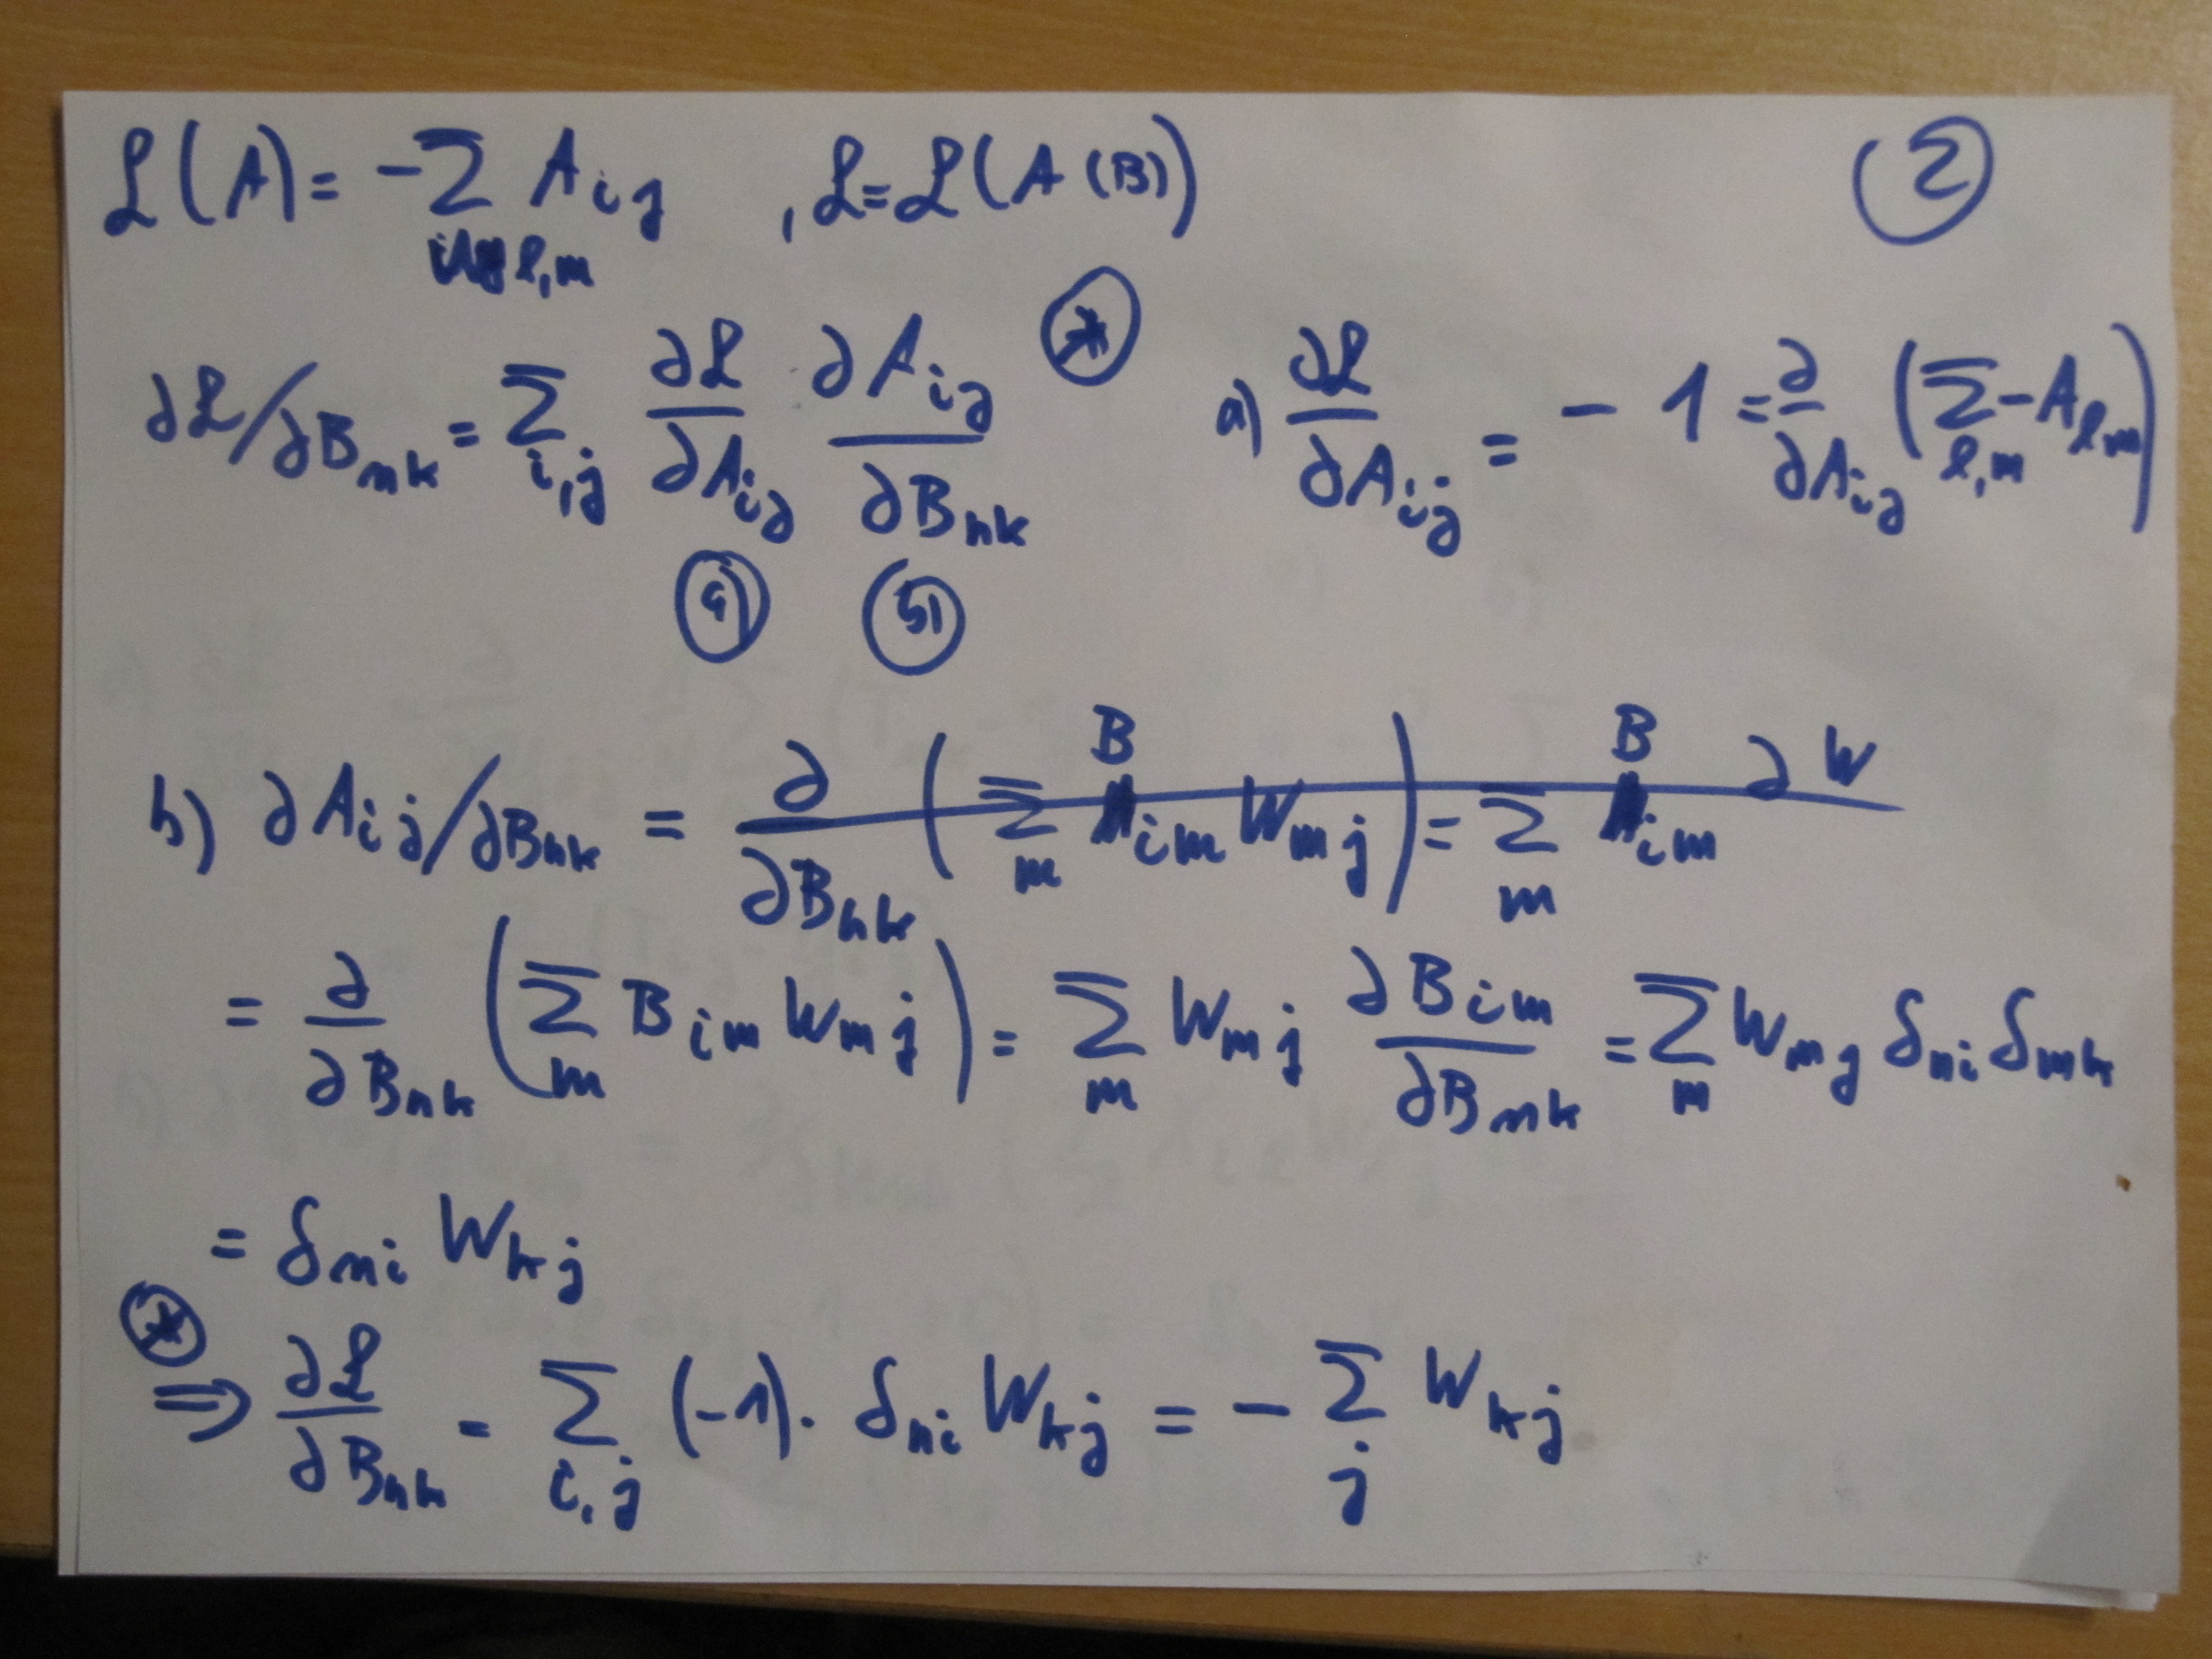 ℒ(A) = -∑_{l,m} A_{ij} , ℒ=ℒ(A(B)) ②
∂ℒ/∂B_{nk} = ∑_{i,j} ∂ℒ/∂A_{ij} ∂A_{ij}/∂B_{nk} ⊛ a) ∂ℒ/∂A_{ij} = -1 = ∂/∂A_{ij} (∑_{l,m} -A_{lm})
a) b)
b) ∂A_{ij}/∂B_{nk} = ∂/∂B_{nk} (∑_m B_{im} W_{mj}) = ∑_m B_{im} ∂W
= ∂/∂B_{nk} (∑_m B_{im} W_{mj}) = ∑_m W_{mj} ∂B_{im}/∂B_{nk} = ∑_m W_{mj} δ_{ni} δ_{mk}
= δ_{ni} W_{kj}
⊛
⇒ ∂ℒ/∂B_{nk} = ∑_{i,j} (-1) · δ_{ni} W_{kj} = -∑_j W_{kj}